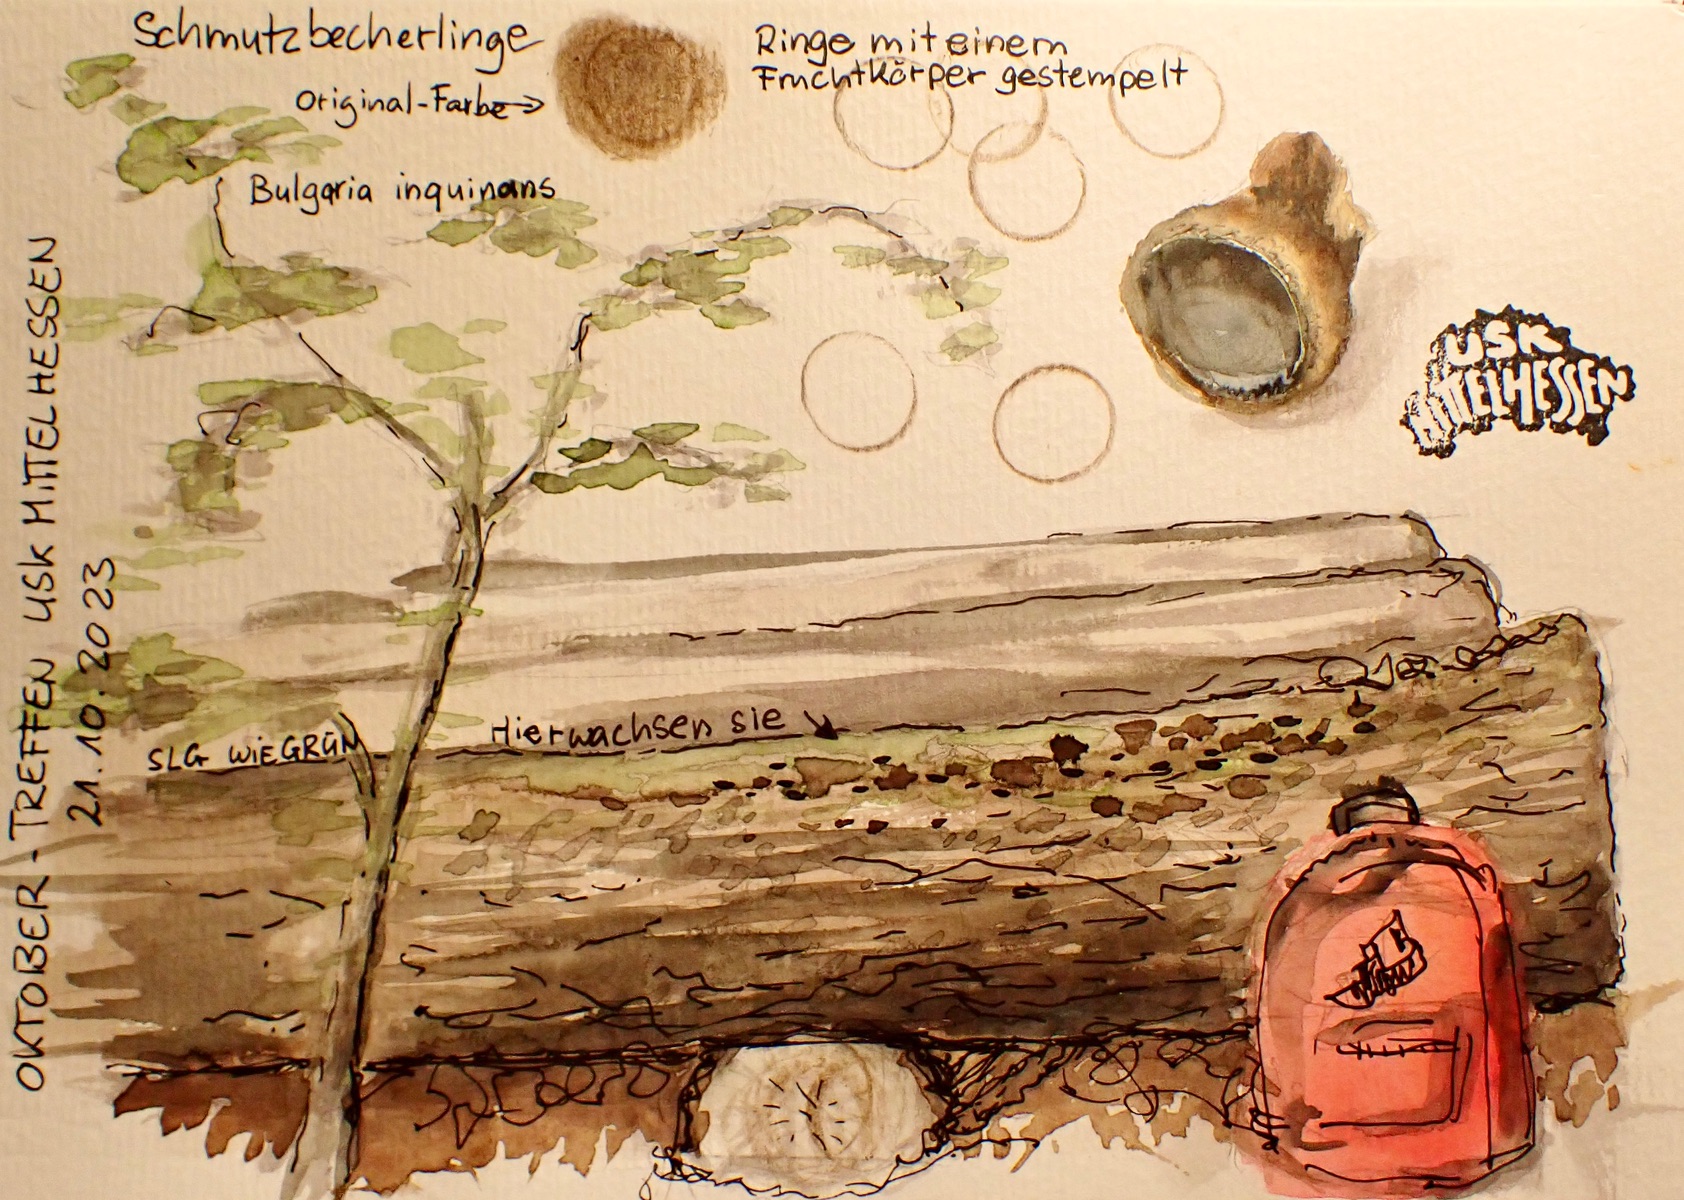 Schmutzbecherlinge
Original-Farbe →
Bulgaria inquinans
Ringe mit einem
Fruchtkörper gestempelt
USK
MITTELHESSEN
Hier wachsen sie
SLG WIEGRÜN
OKTOBER-TREFFEN USK MITTELHESSEN
21.10.2023